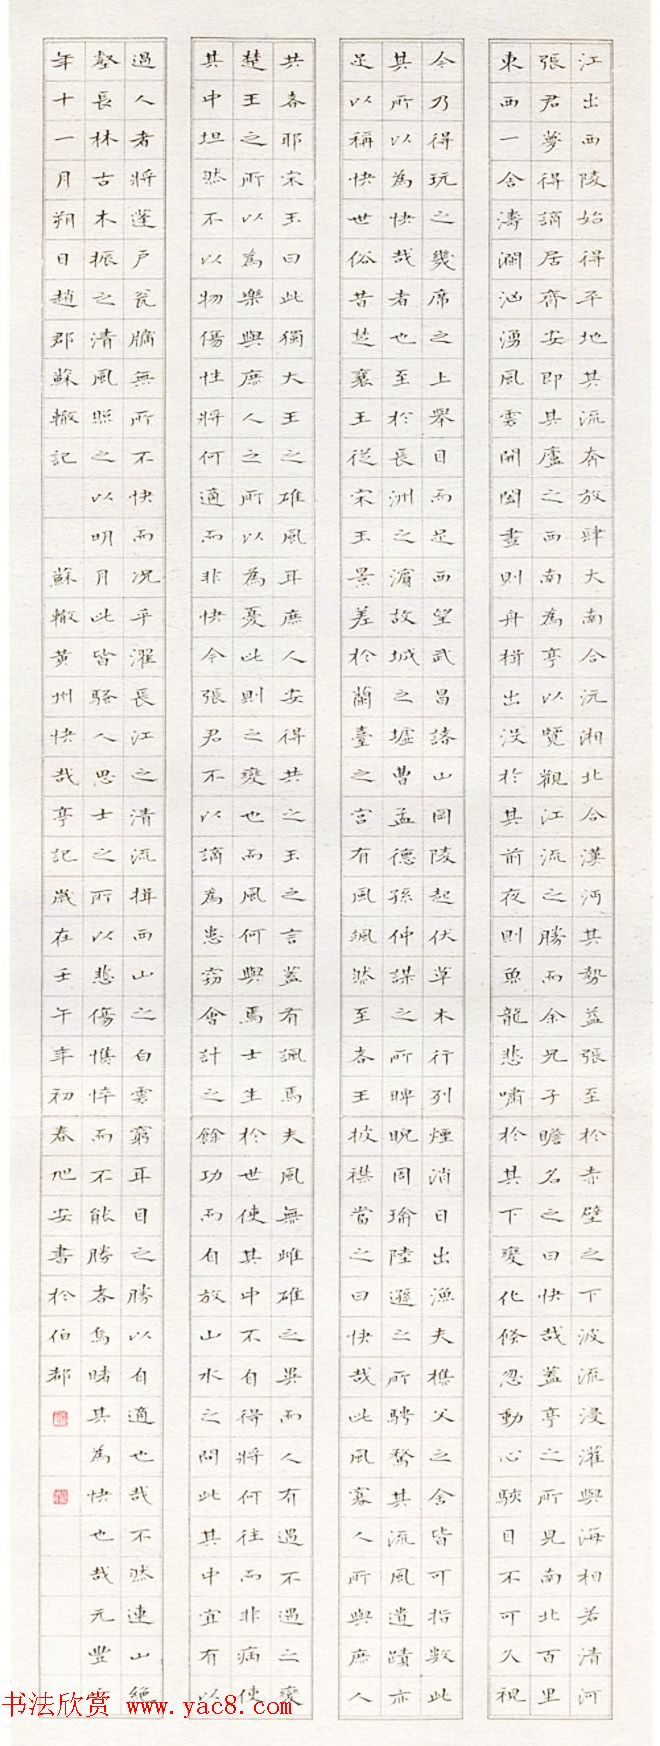 江出西陵始得平地其流奔放肆大南合沅湘北合漢沔其勢益張至於赤壁之下波流浸灌與海相若清河
張君夢得謫居齊安即其廬之西南為亭以覽觀江流之勝而余兄子瞻名之曰快哉蓋亭之所見南北百里
東西一舍濤瀾洶湧風雲開闔晝則舟楫出沒於其前夜則魚龍悲嘯於其下變化倏忽動心駭目不可久視
今乃得玩之幾席之上舉目而足西望武昌諸山岡陵起伏草木行列煙消日出漁夫樵父之舍皆可指數此
其所以為快哉者也至於長洲之濱故城之墟曹孟德孫仲謀之所睥睨周瑜陸遜之所騁騖其流風遺蹟亦
足以稱快世俗昔楚襄王從宋玉景差於蘭臺之宮有風颯然至者王披襟當之曰快哉此風寡人所與庶人
共者耶宋玉曰此獨大王之雄風耳庶人安得共之玉之言蓋有諷焉夫風無雌雄之異而人有遇不遇之變
楚王之所以為樂與庶人之所以為憂此則之變也而風何與焉士生於世使其中不自得將何往而非病使
其中坦然不以物傷性將何適而非快今張君不以謫為患竊會計之餘功而自放山水之間此其中宜有以
過人者將蓬戶瓮牖無所不快而況乎濯長江之清流揖西山之白雲窮耳目之勝以自適也哉不然連山絕
壑長林古木振之清風照之以明月此皆騷人思士之所以悲傷憔悴而不能勝者烏睹其為快也哉元豐
年十一月朔日趙郡蘇轍記 蘇轍黃州快哉亭記歲在壬午年初春旭安書於伯都
书法欣赏 www.yac8.com